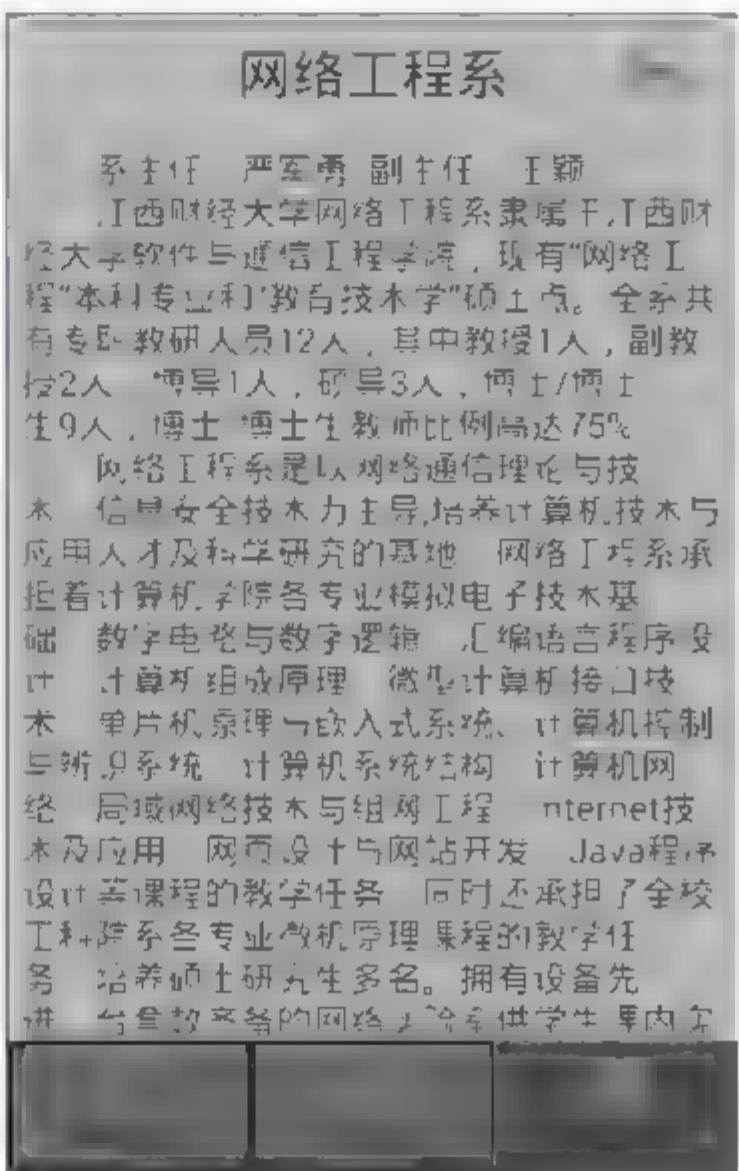 网络工程系
系主任 严军勇 副主任 王颖
江西财经大学网络工程系隶属于江西财
经大学软件与通信工程学院，现有“网络工
程”本科专业和“教育技术学”硕士点。全系共
有专职教研人员12人，其中教授1人，副教
授2人 博导1人，硕导3人，博士/博士
生9人，博士 博士生教师比例高达75%
网络工程系是以网络通信理论与技
术 信息安全技术为主导,培养计算机技术与
应用人才及科学研究的基地 网络工程系承
担着计算机学院各专业模拟电子技术基
础 数字电路与数字逻辑 汇编语言程序设
计 计算机组成原理 微型计算机接口技
术 单片机原理与嵌入式系统、计算机控制
与辨识系统 计算机系统结构 计算机网
络 局域网络技术与组网工程 Internet技
术及应用 网页设计与网站开发 Java程序
设计等课程的教学任务 同时还承担了全校
工科院系各专业微机原理课程的教学任
务 培养硕士研究生多名。拥有设备先
进 的网络实验室供学生课内实